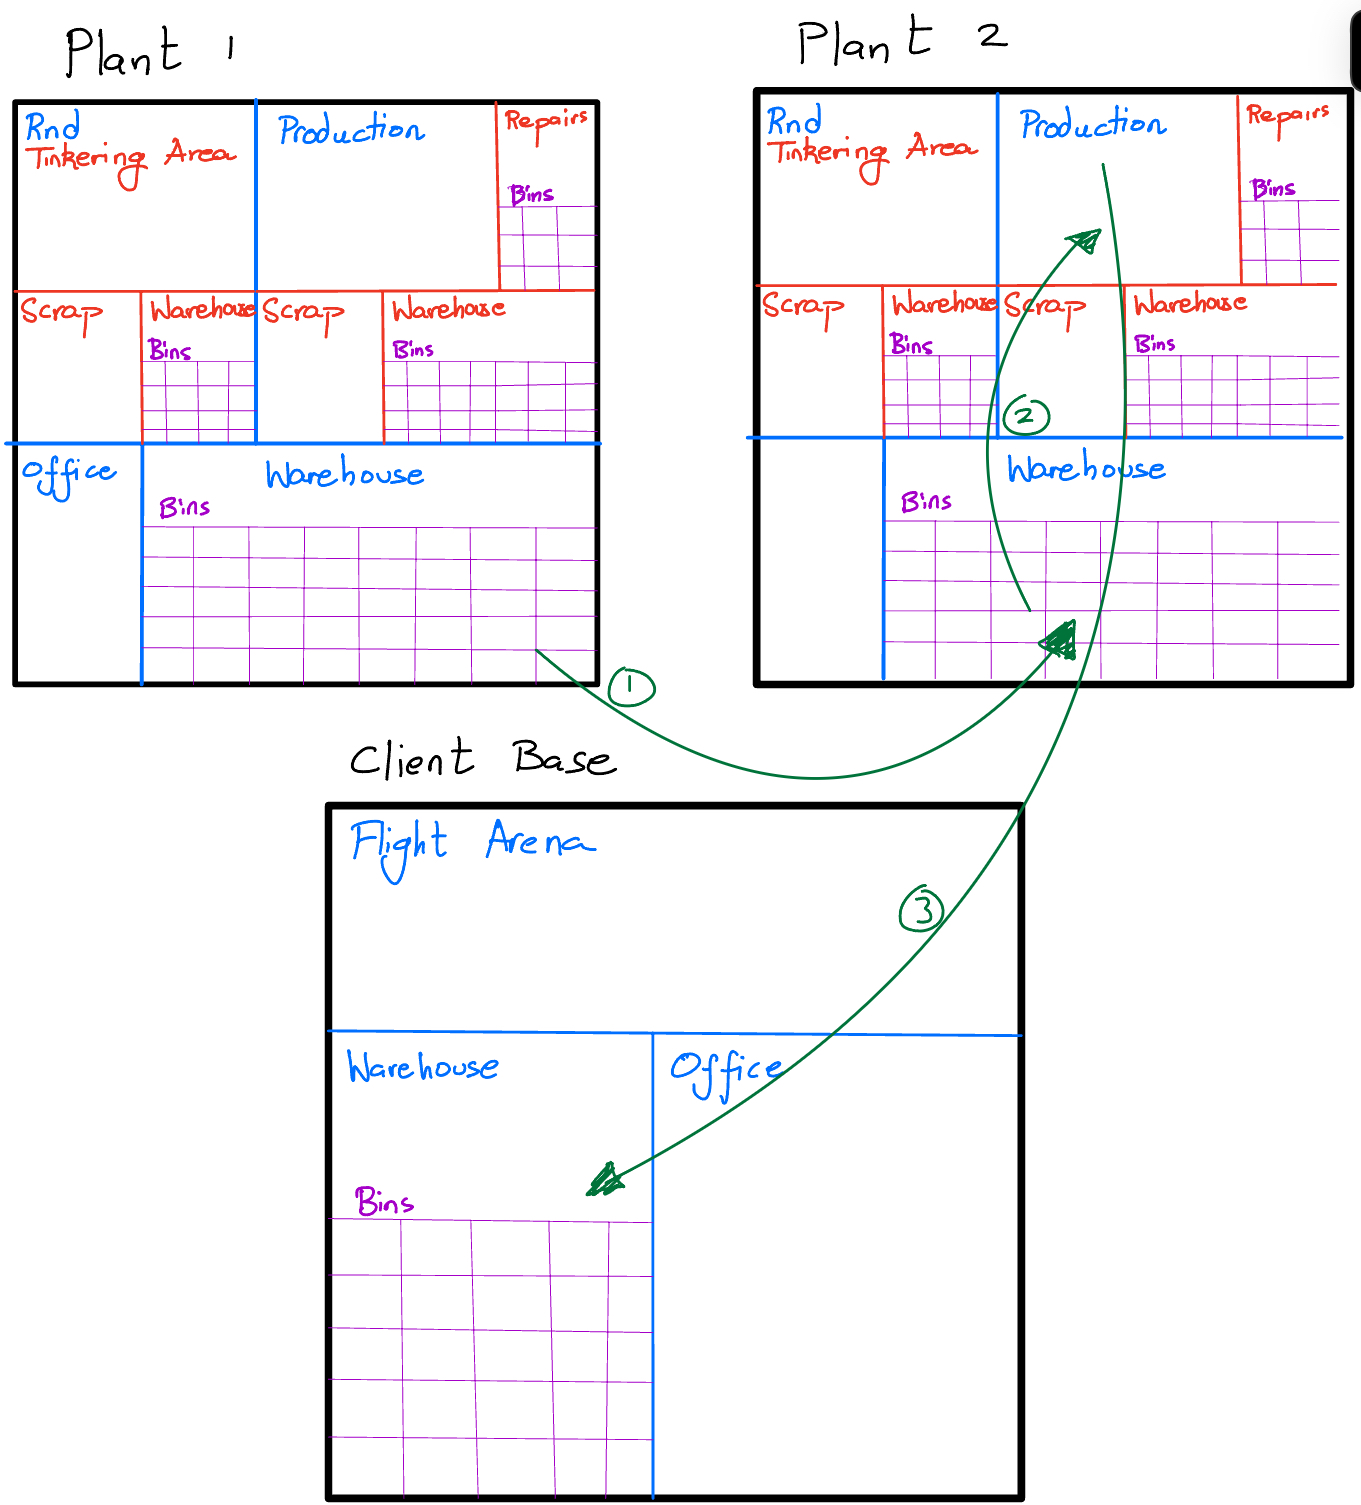 Plant 1
Rnd
Tinkering Area
Production
Repairs
Bins
Scrap
Warehouse
Bins
Scrap
Warehouse
Bins
Office
Warehouse
Bins
1
Plant 2
Rnd
Tinkering Area
Production
Repairs
Bins
Scrap
Warehouse
Bins
Scrap
2
Warehouse
Bins
Warehouse
Bins
Client Base
Flight Arena
3
Warehouse
Bins
Office